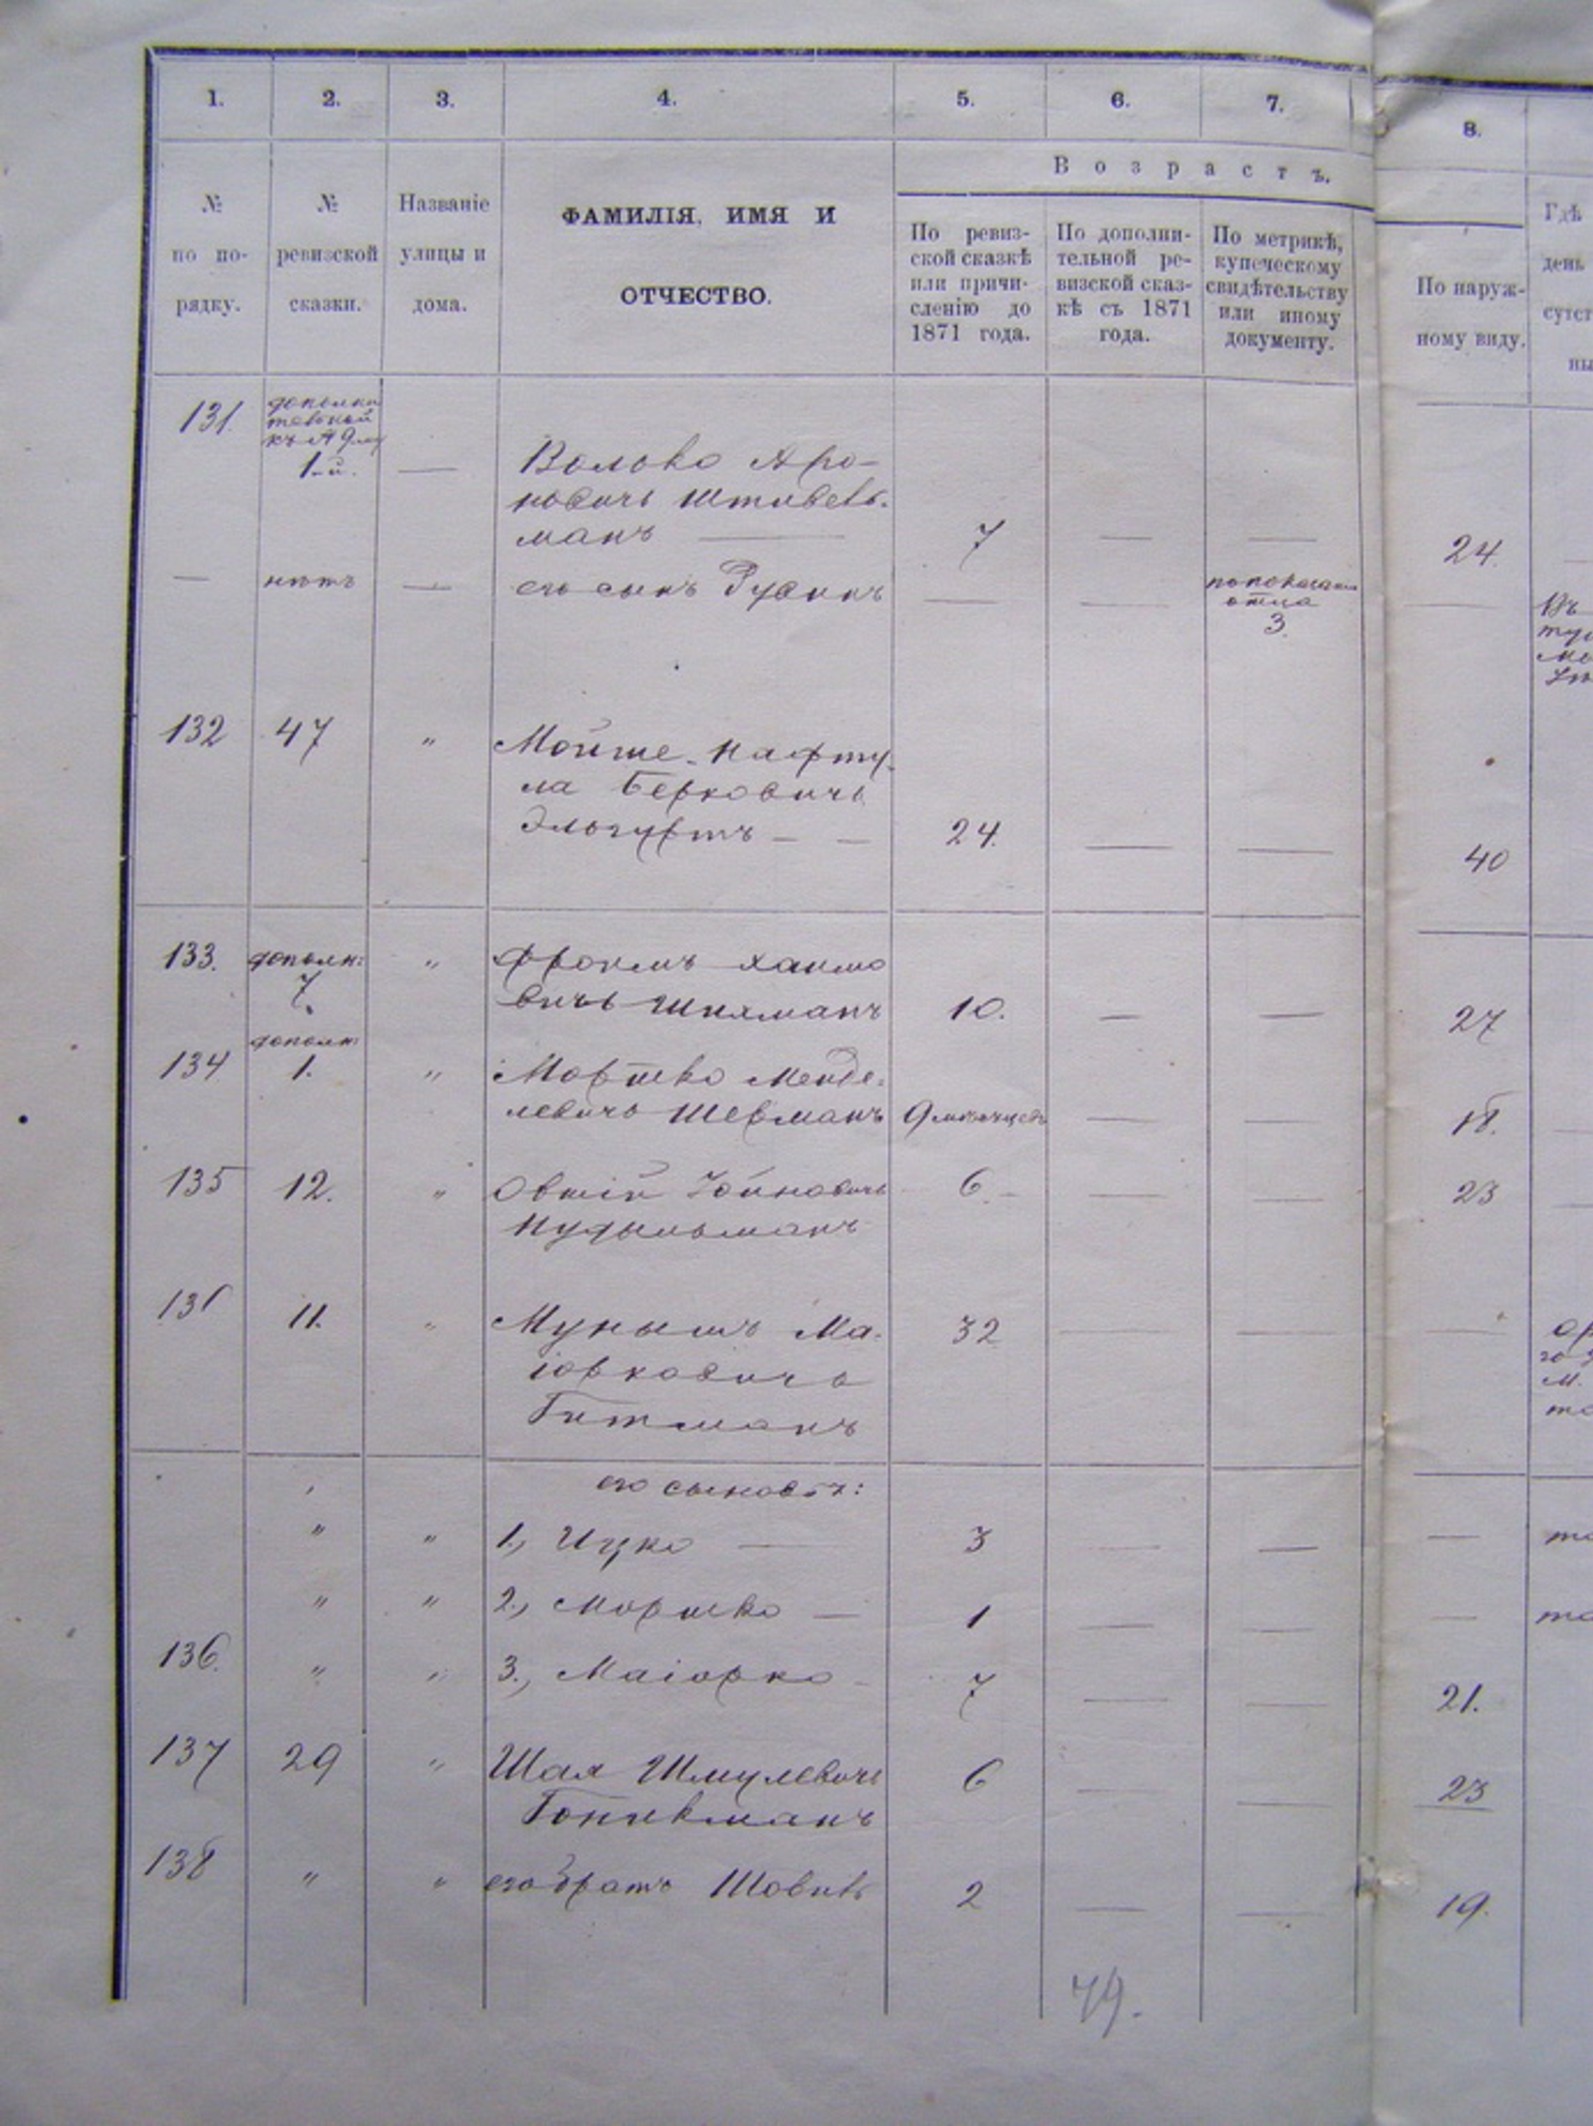 1. 2. 3. 4. 5. 6. 7. 8.
В о з р а с т ъ.
№ по по- рядку.
№ ревизской сказки.
Названіе улицы и дома.
ФАМИЛІЯ, ИМЯ И
ОТЧЕСТВО.
По ревиз-
ской сказкѣ
или причи-
сленію до
1871 года.
По дополни-
тельной ре-
визской сказ-
кѣ съ 1871
года.
По метрикѣ,
купеческому
свидѣтельству
или иному
документу.
По наруж-
ному виду.
Гдѣ
день
сутст
ны
131. 1-й. — Волько Аро-
новичъ Штивель-
манъ — 7 — — 24.
— нѣтъ — его сынъ Рувинъ — — отца 3. —
132 47 " Мойше-Нафту-
ла Берковичъ
Эльгуртъ — — 24. — — 40
133. дополн: 7. " Фроимъ Хаимо
вичъ Шихманъ 10. — — 27
134 дополн: 1. " Моршко Менде-
левичъ Шерманъ 9 мѣсяцевъ — — 18.
135 12. " Овшій Іойновичъ 6. — — 23
Нудыльманъ
131 11. " Мунышъ Ма-
іорковичъ
Гитманъ 32 — — —
его сыновья:
" " 1., Ицко — 3 — — —
" " 2., Моршко — 1 — — —
136. " " 3., Маіорко — 7 — — 21.
137 29 " Шая Шмулевичъ 6 — — 23
Гоникманъ
138 " " его братъ Шовель 2 — — 19.
79.